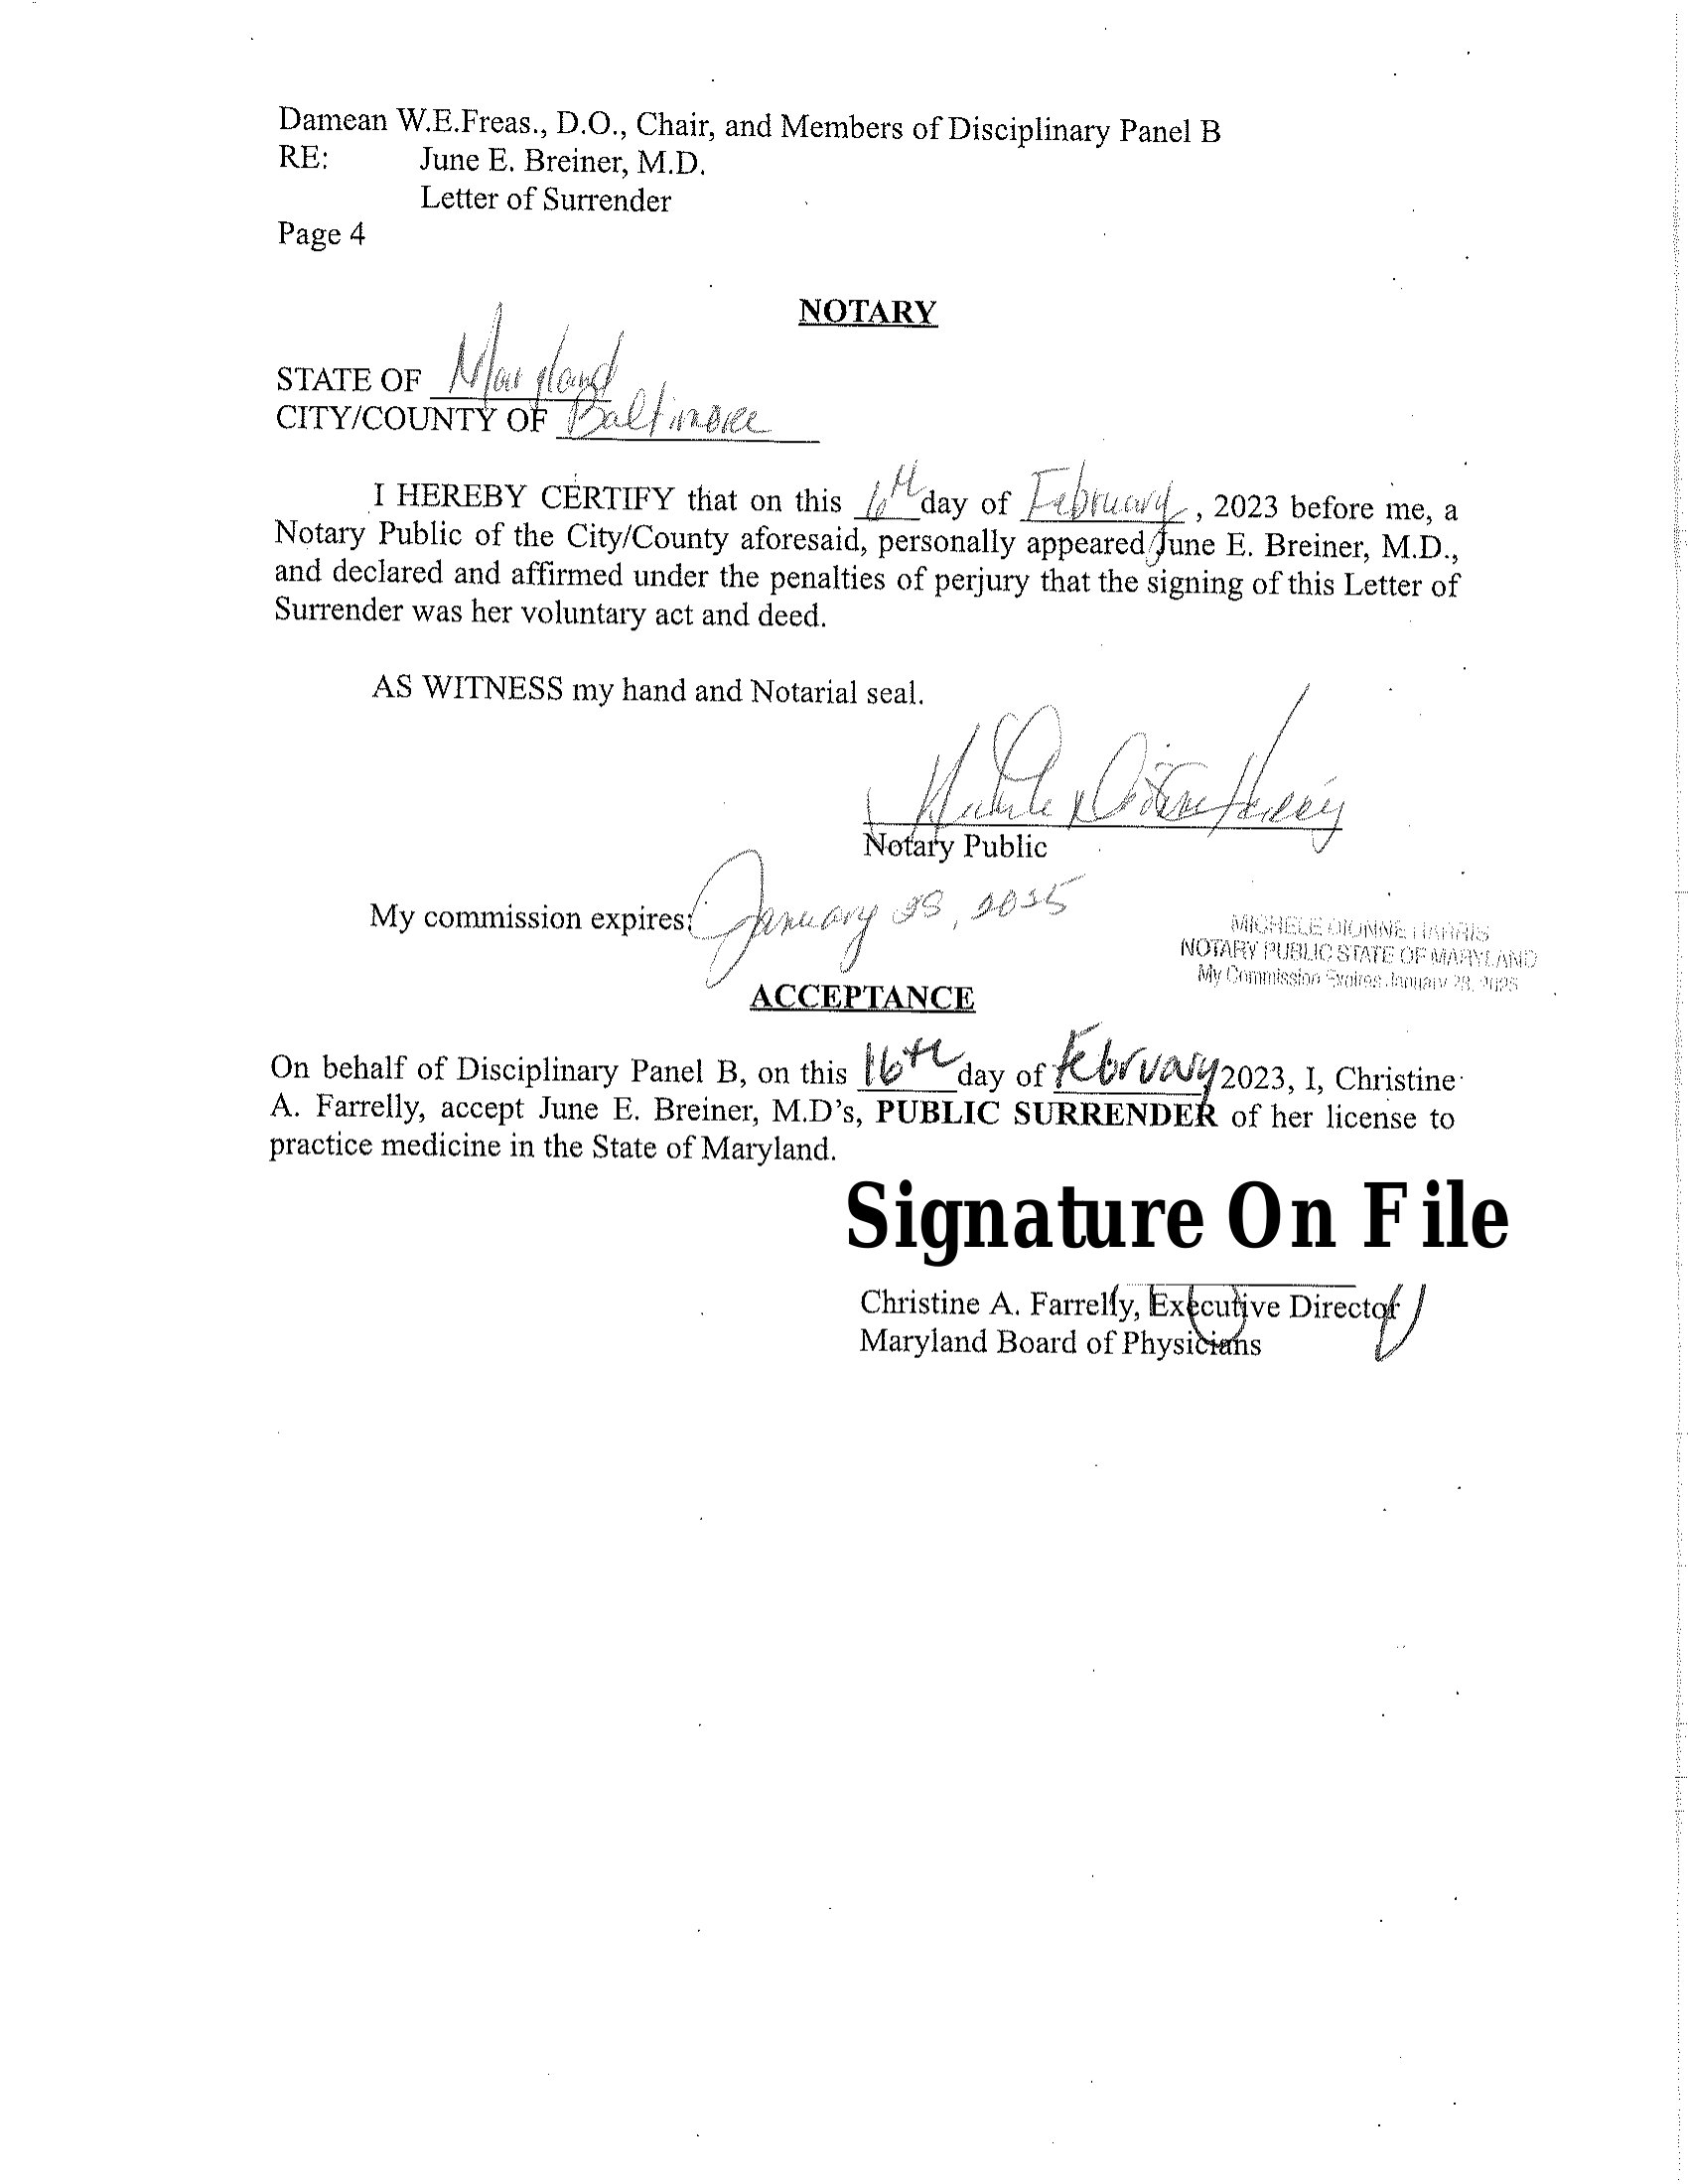 Damean W.E.Freas., D.O., Chair, and Members of Disciplinary Panel B
RE: June E. Breiner, M.D.
Letter of Surrender
Page 4
NOTARY
STATE OF Maryland
CITY/COUNTY OF Baltimore
I HEREBY CERTIFY that on this 6th day of February, 2023 before me, a
Notary Public of the City/County aforesaid, personally appeared June E. Breiner, M.D.,
and declared and affirmed under the penalties of perjury that the signing of this Letter of
Surrender was her voluntary act and deed.
AS WITNESS my hand and Notarial seal.
Michele Dionne Harris
Notary Public
My commission expires: January 28, 2025
MICHELE DIONNE HARRIS
NOTARY PUBLIC STATE OF MARYLAND
My Commission Expires January 28, 2025
ACCEPTANCE
On behalf of Disciplinary Panel B, on this 16th day of February 2023, I, Christine
A. Farrelly, accept June E. Breiner, M.D's, PUBLIC SURRENDER of her license to
practice medicine in the State of Maryland.
Signature On File
Christine A. Farrelly, Executive Director
Maryland Board of Physicians